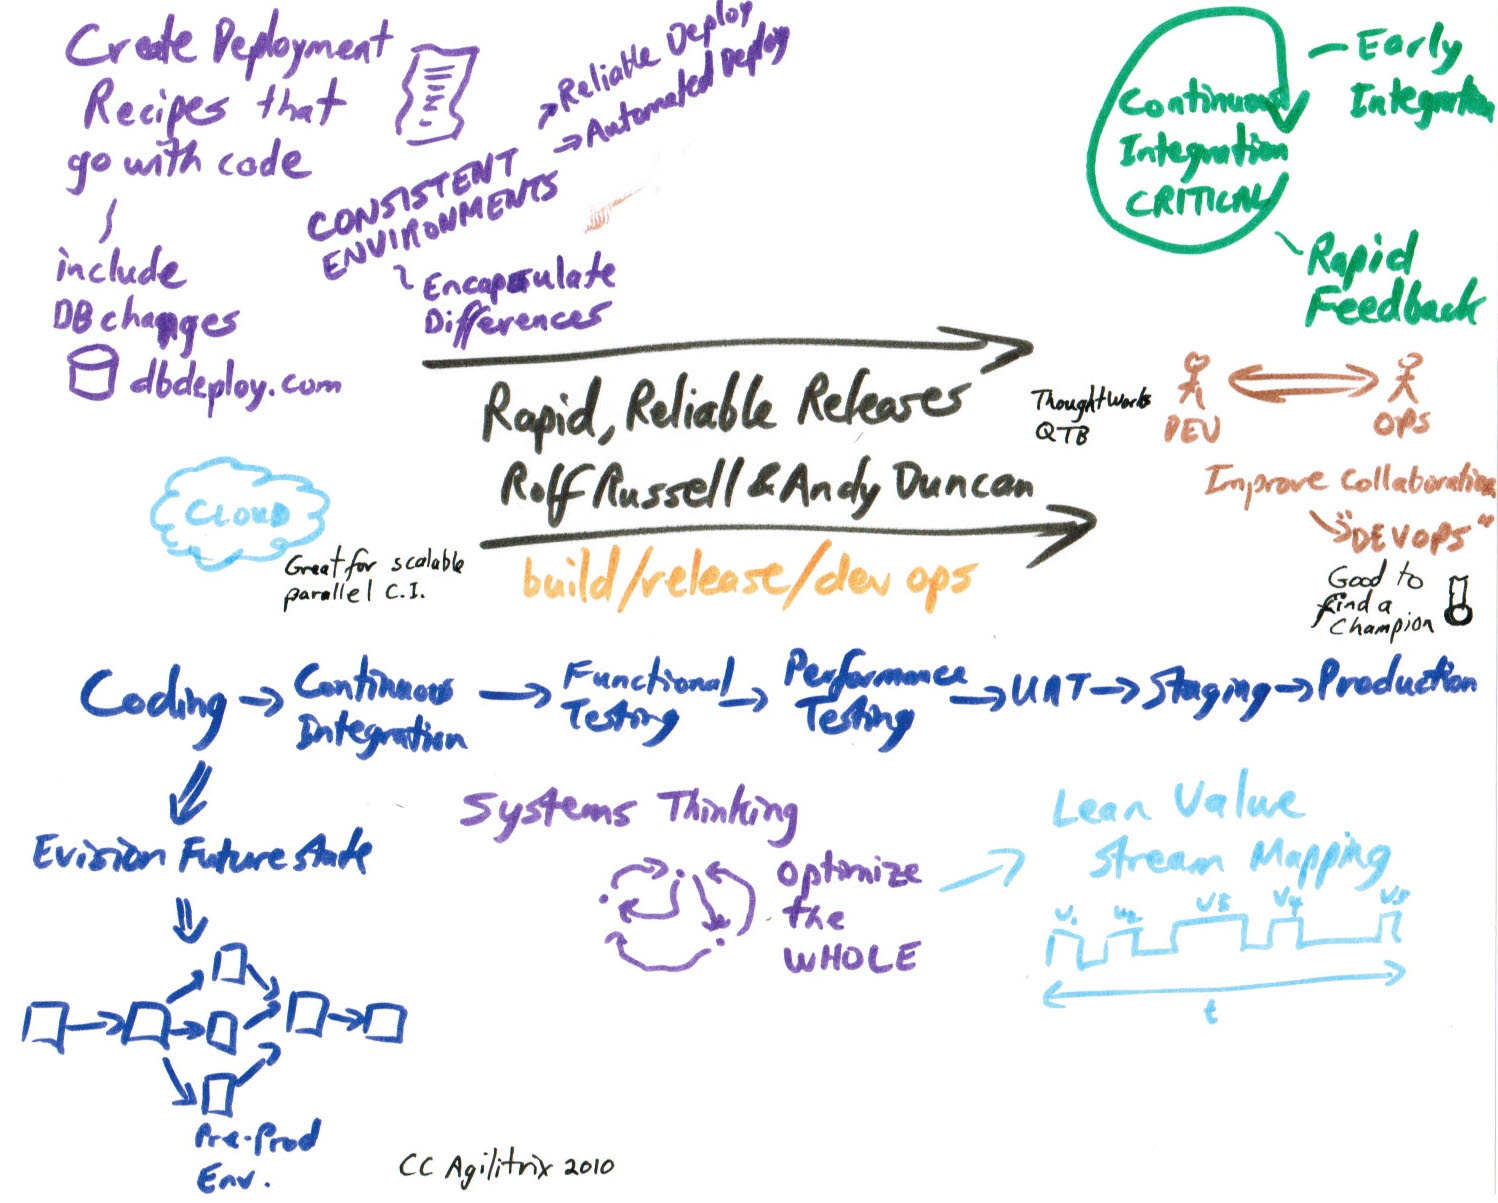 Create Deployment
Recipes that
go with code
include
DB changes
dbdeploy.com
CONSISTENT
ENVIRONMENTS
Reliable Deploy
Automated Deploy
Encapsulate
Differences
Continuous
Integration
CRITICAL
Early
Integration
Rapid
Feedback
Rapid, Reliable Releases
Rolf Russell & Andy Duncan
build/release/dev ops
ThoughtWorks
QTB
DEV
OPS
Improve Collaboration
"DEVOPS"
Good to
find a
Champion
CLOUD
Great for scalable
parallel C.I.
Coding → Continuous Integration → Functional Testing → Performance Testing → UAT → Staging → Production
Evision Future state
Pre-Prod
Env.
Systems Thinking
Optimize
the
WHOLE
Lean Value
Stream Mapping
V1 V2 V3 V4 V5
t
CC Agilitrix 2010